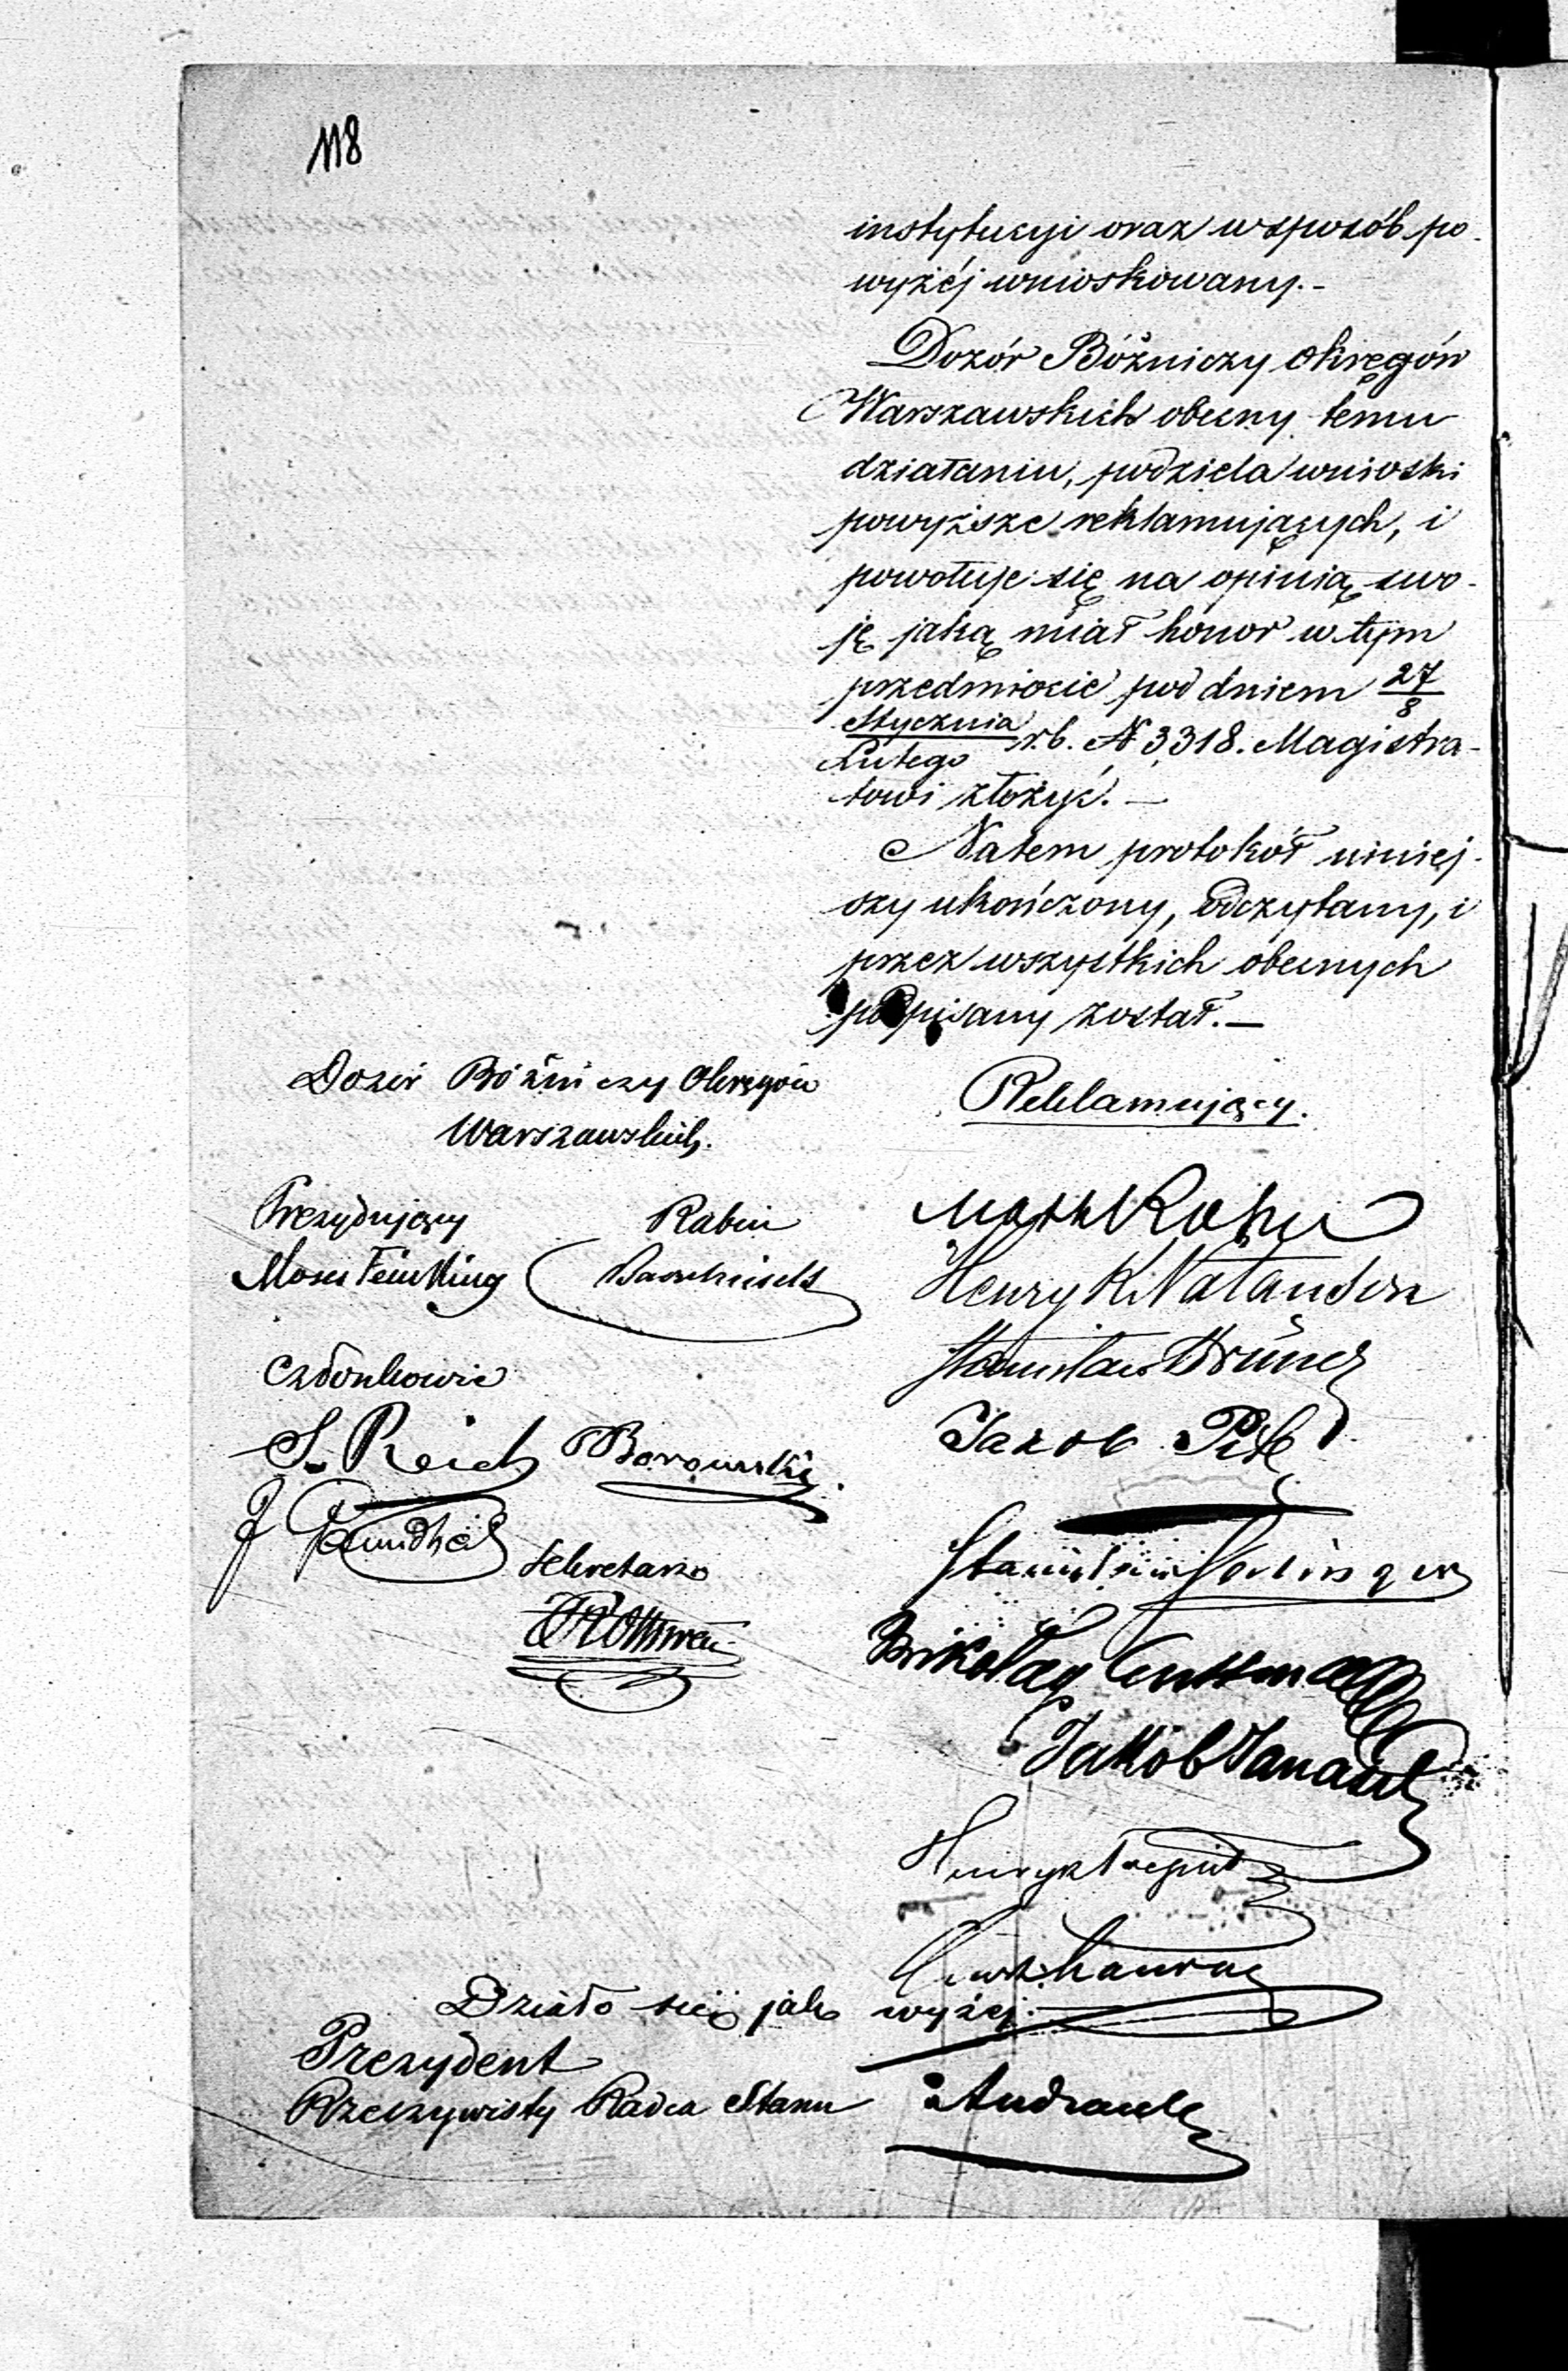 118
instytucyi oraz w sposób po-
wyżéj wnioskowany.-
Dozór Bóżniczy Okręgów
Warszawskich obecny temu
działaniu, podziela wnioski
powyższe reklamujących, i
powołuje się na opinią swo-
ję jaką miał honor w tym
przedmiocie pod dniem 27/8
Stycznia/Lutego r.b. N 3318. Magistra-
towi złożyć. —
Na tem protokół niniej-
szy ukończony, odczytany, i
przez wszystkich obecnych
podpisany został. —
Dozór Bóżniczy Okręgów
Warszawskich.
Reklamujący.
Prezydujący
Rabin
Moses Feinkind
Henryk Natanson
Członkowie
Stanisław Brüner
S. Reich
Borowski
Jakob
Sekretarz
Stanisław
Mikołaj
Jakob
Henryk
Działo się jak wyżej.
Prezydent
Rzeczywisty Radca Stanu Andrault